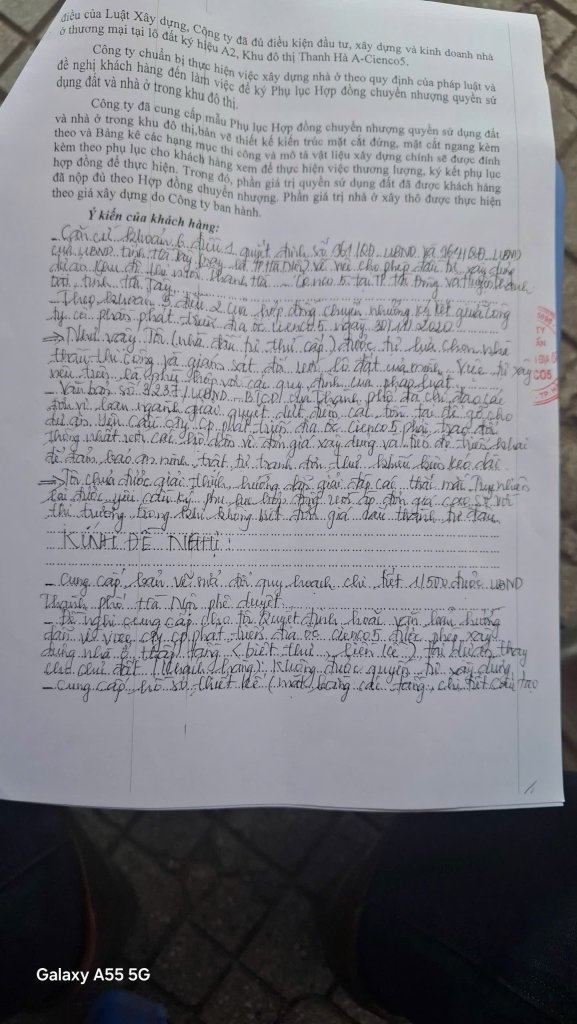 điều của Luật Xây dựng, Công ty đã đủ điều kiện đầu tư, xây dựng và kinh doanh nhà
ở thương mại tại lô đất ký hiệu A2, Khu đô thị Thanh Hà A-Cienco5.
Công ty chuẩn bị thực hiện việc xây dựng nhà ở theo quy định của pháp luật và
đề nghị khách hàng đến làm việc để ký Phụ lục Hợp đồng chuyển nhượng quyền sử
dụng đất và nhà ở trong khu đô thị.
Công ty đã cung cấp mẫu Phụ lục Hợp đồng chuyển nhượng quyền sử dụng đất
và nhà ở trong khu đô thị,bản vẽ thiết kế kiến trúc mặt cắt đứng, mặt cắt ngang kèm
theo và Bảng kê các hạng mục thi công và mô tả vật liệu xây dựng chính sẽ được đính
kèm theo phụ lục cho khách hàng xem để thực hiện việc thương lượng, ký kết phụ lục
hợp đồng để thực hiện. Trong đó, phần giá trị quyền sử dụng đất đã được khách hàng
đã nộp đủ theo Hợp đồng chuyển nhượng. Phần giá trị nhà ở xây thô được thực hiện
theo giá xây dựng do Công ty ban hành.
Ý kiến của khách hàng:
- Căn cứ khoản 6 điều 1 quyết định số QĐ UBND và QĐ UBND
của UBND tỉnh Hà Tây (nay là TP Hà Nội) về việc cho phép đầu tư xây dựng
dự án Khu đô thị mới Thanh Hà - Cienco 5 tại TP Hà Đông và huyện
tỉnh Hà Tây.
- Theo khoản điều 2 của hợp đồng chuyển nhượng ký kết giữa công
ty cổ phần phát triển địa ốc Cienco5 ngày 2020
⇒ Như vậy Tôi (nhà đầu tư thứ cấp) được tự lựa chọn nhà
thầu thi công và giám sát đối với lô đất của mình. Việc tự xây
nêu trên là phù hợp với các quy định của pháp luật.
- Văn bản số 3237/UBND-BTCD của Thành phố đã chỉ đạo các
đơn vị ban ngành giải quyết dứt điểm các tồn tại để gỡ cho
dự án. Yêu cầu Cty CP phát triển địa ốc Cienco5 phải trao đổi
thống nhất với các hộ dân về đơn giá xây dựng và tiến độ triển khai
để đảm bảo an ninh, trật tự tránh đơn thư khiếu kiện kéo dài.
⇒ Tôi chưa được giải thích, hướng dẫn giải đáp các thắc mắc. Tuy nhiên
lại được yêu cầu ký phụ lục hợp đồng với áp đơn giá cao so với
thị trường trong khi không biết đơn giá
KÍNH ĐỀ NGHỊ:
- Cung cấp bản vẽ quy hoạch chi tiết 1/500 được UBND
Thành phố Hà Nội phê duyệt
- Đề nghị cung cấp cho tôi Quyết định hoặc văn bản hướng
dẫn về việc cty CP phát triển địa ốc Cienco5 được phép xây
dựng nhà ở thấp tầng (biệt thự, liền kề). Tại dự án thay
cho chủ đất (khách hàng). Không được quyền tự xây dựng
- Cung cấp hồ sơ thiết kế (mặt bằng các tầng, chi tiết cấu tạo
TY
CO5
Galaxy A55 5G